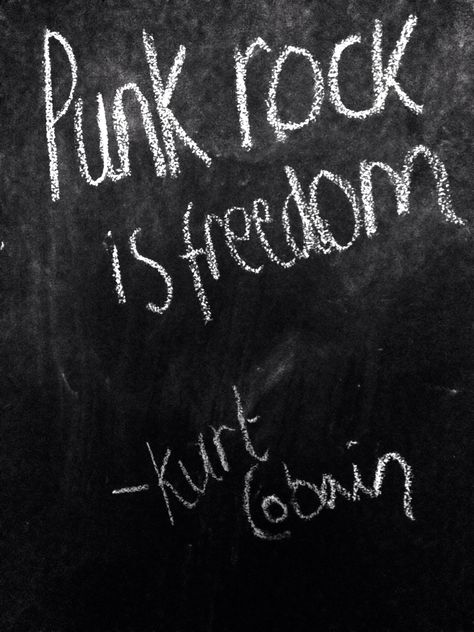 Punk rock
is freedom
-Kurt
Cobain